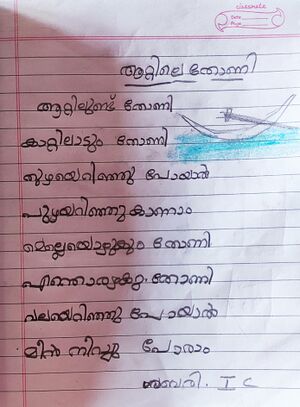 classmate
Date
Page
ആറ്റിലെ തോണി
ആറ്റിലുണ്ട് തോണി
കാറ്റിലാടും തോണി
തുഴയെറിഞ്ഞു പോയാൽ
പുഴയറിഞ്ഞു കാണാം
മെല്ലെയൊഴുകും തോണി
എന്തൊരഴക്കു തോണി
വലയെറിഞ്ഞു പോയാൽ
മീൻ നിറച്ചു പോരാം
ശബരി. I C